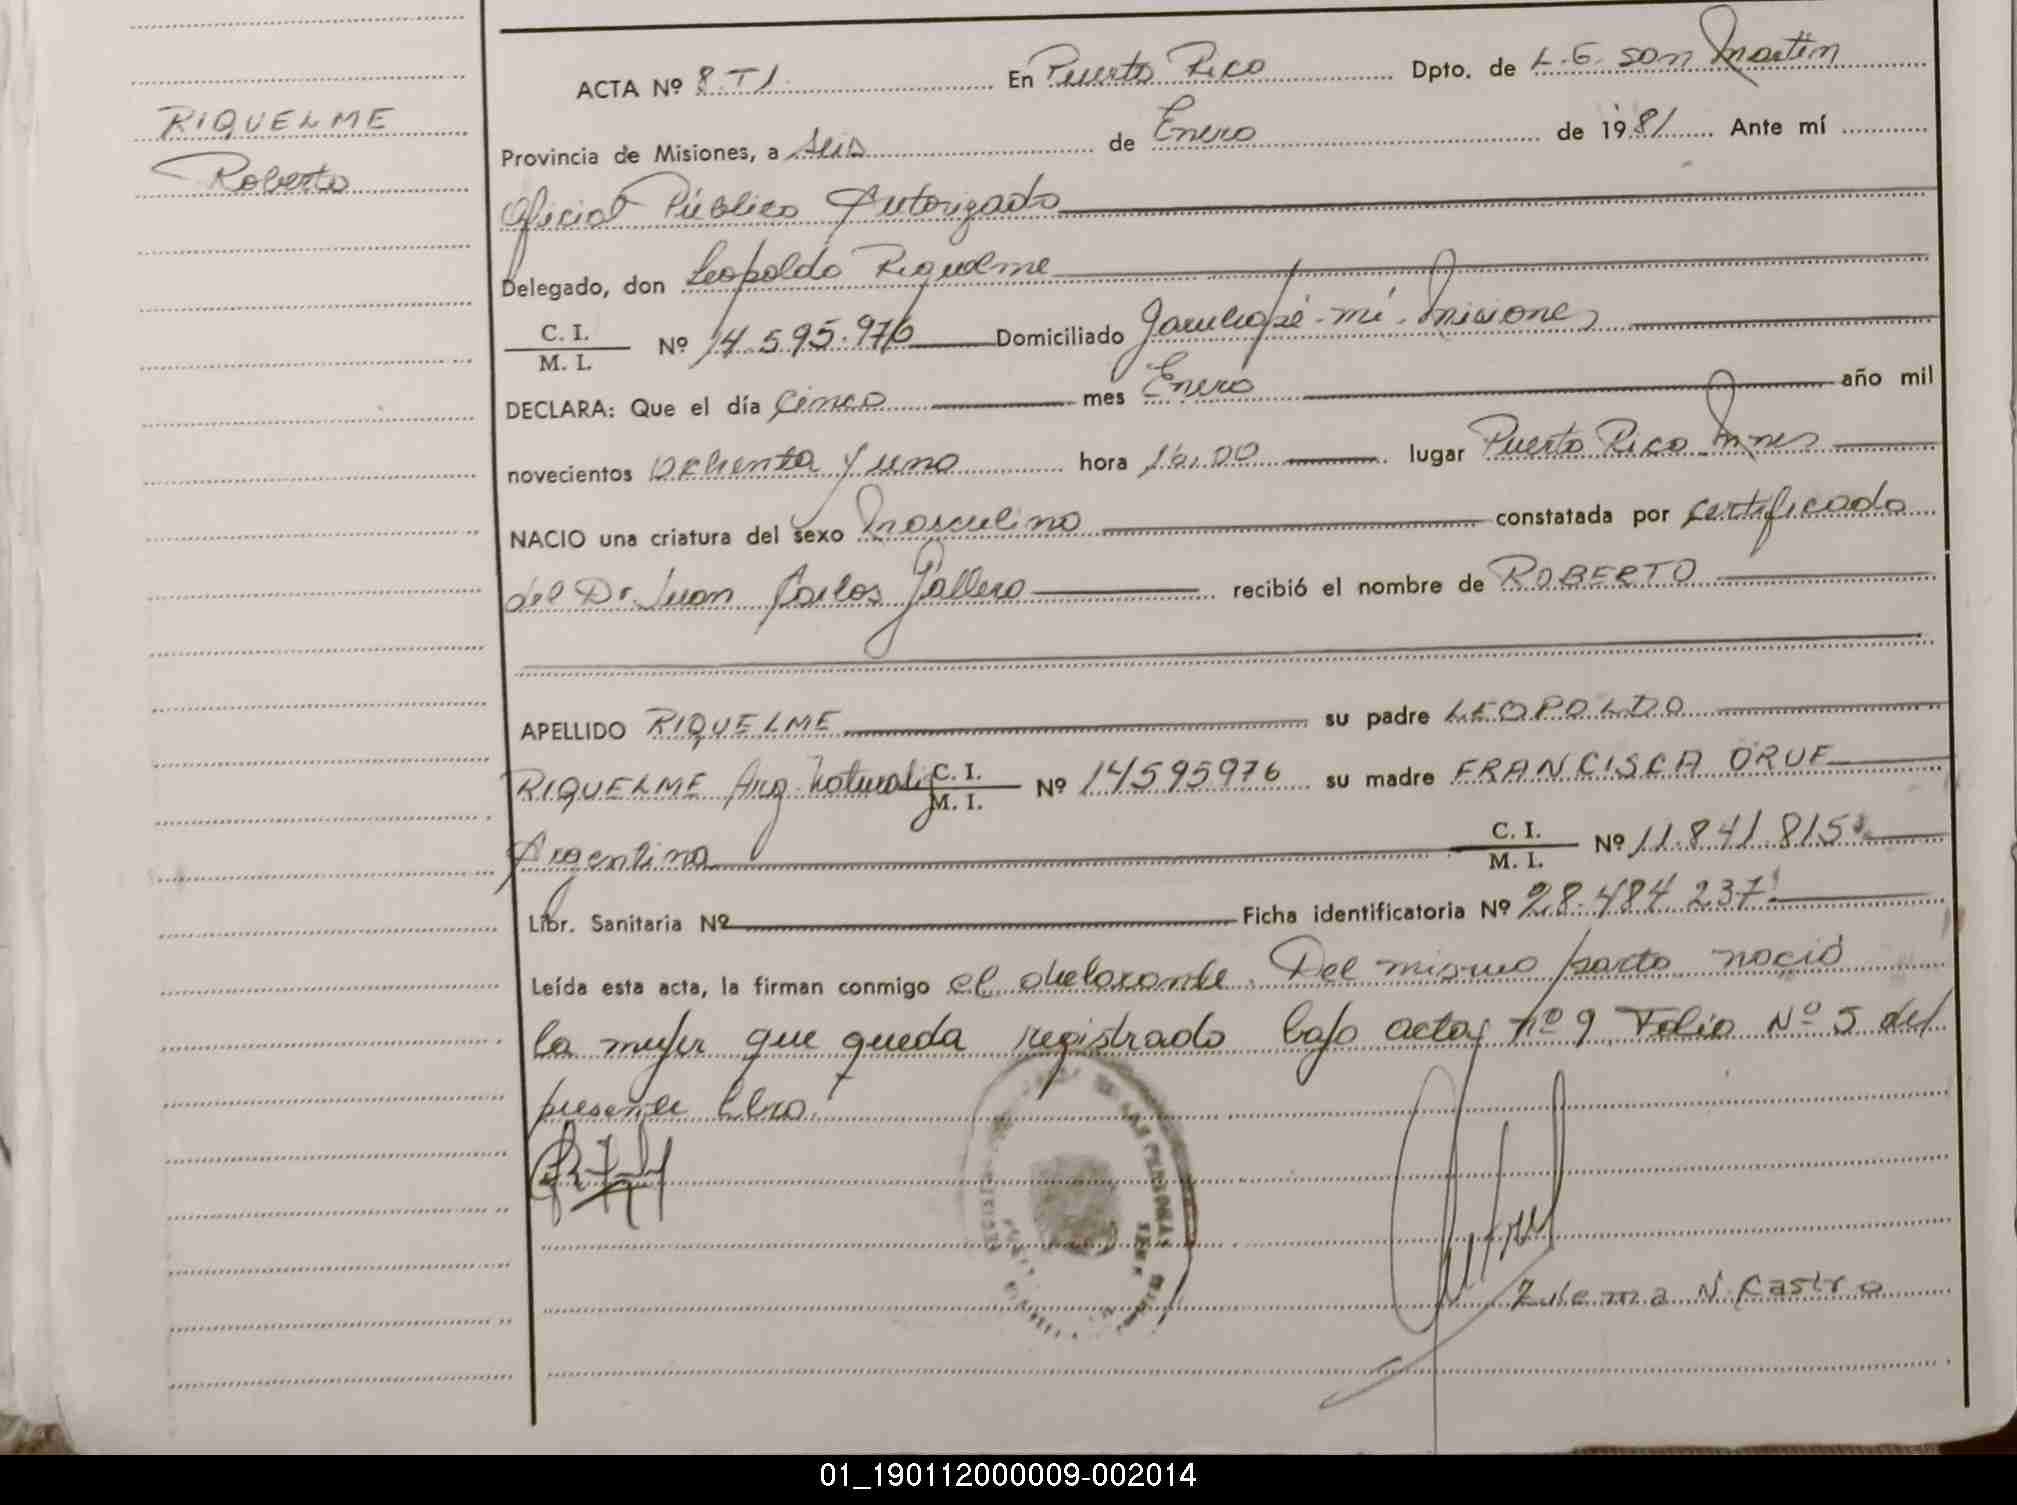 RIQUELME
Roberto
ACTA Nº 8.T1. En Puerto Rico Dpto. de L.G. San Martin
Provincia de Misiones, a seis de Enero de 1981 Ante mí
Oficial Público Autorizado
Delegado, don Leopoldo Riquelme
C. I.
M. I. Nº 14.595.976 Domiciliado Garuhapé-mí-Misiones
DECLARA: Que el día cinco mes Enero año mil
novecientos ochenta y uno hora 16,00 lugar Puerto Rico Mnes
NACIO una criatura del sexo Masculino constatada por certificado
del Dr. Juan Carlos Gallero recibió el nombre de ROBERTO
APELLIDO RIQUELME su padre LEOPOLDO
RIQUELME Arg. C. I. M. I. Nº 14595976 su madre FRANCISCA ORUE
Argentina C. I. M. I. Nº 11.841.815
Libr. Sanitaria Nº Ficha identificatoria Nº 28.484.237
Leída esta acta, la firman conmigo el declarante. Del mismo parto nació
la mujer que queda registrado bajo acta nº 9 Folio Nº 5 del
presente libro.
Zulema N. Castro
01_190112000009-002014